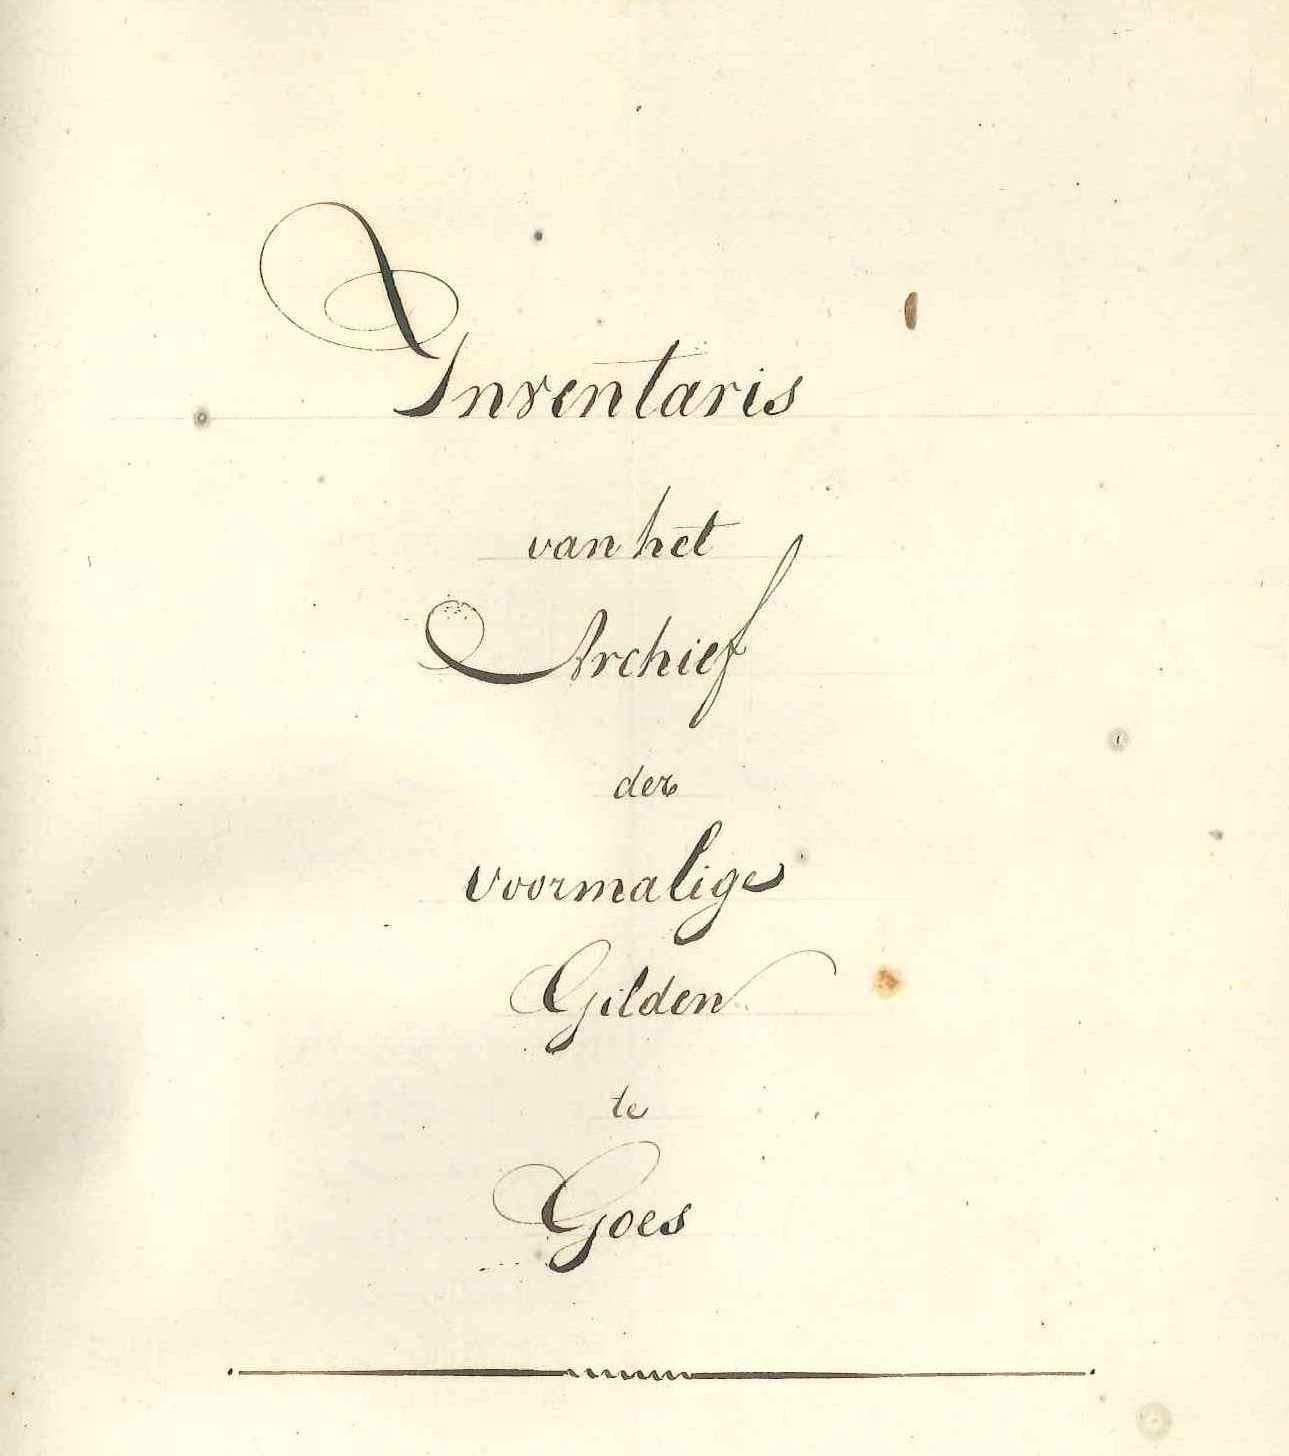 Inventaris
van het
Archief
der
voormalige
Gilden
te
Goes